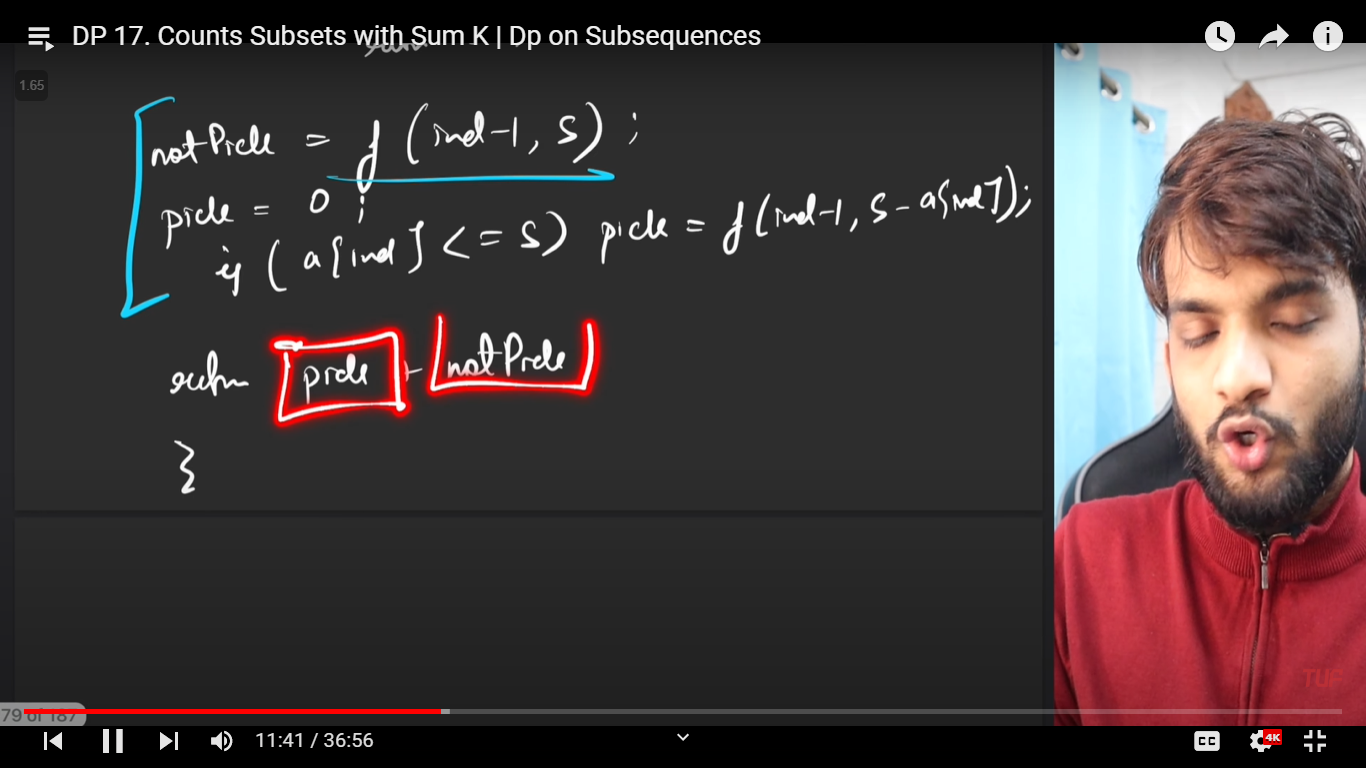 DP 17. Counts Subsets with Sum K | Dp on Subsequences
1.65
notPick = f(ind-1, S);
pick = 0;
if (a[ind] <= S) pick = f(ind-1, S-a[ind]);
return pick + notPick
}
TUF
79 of 187
11:41 / 36:56
CC
4K